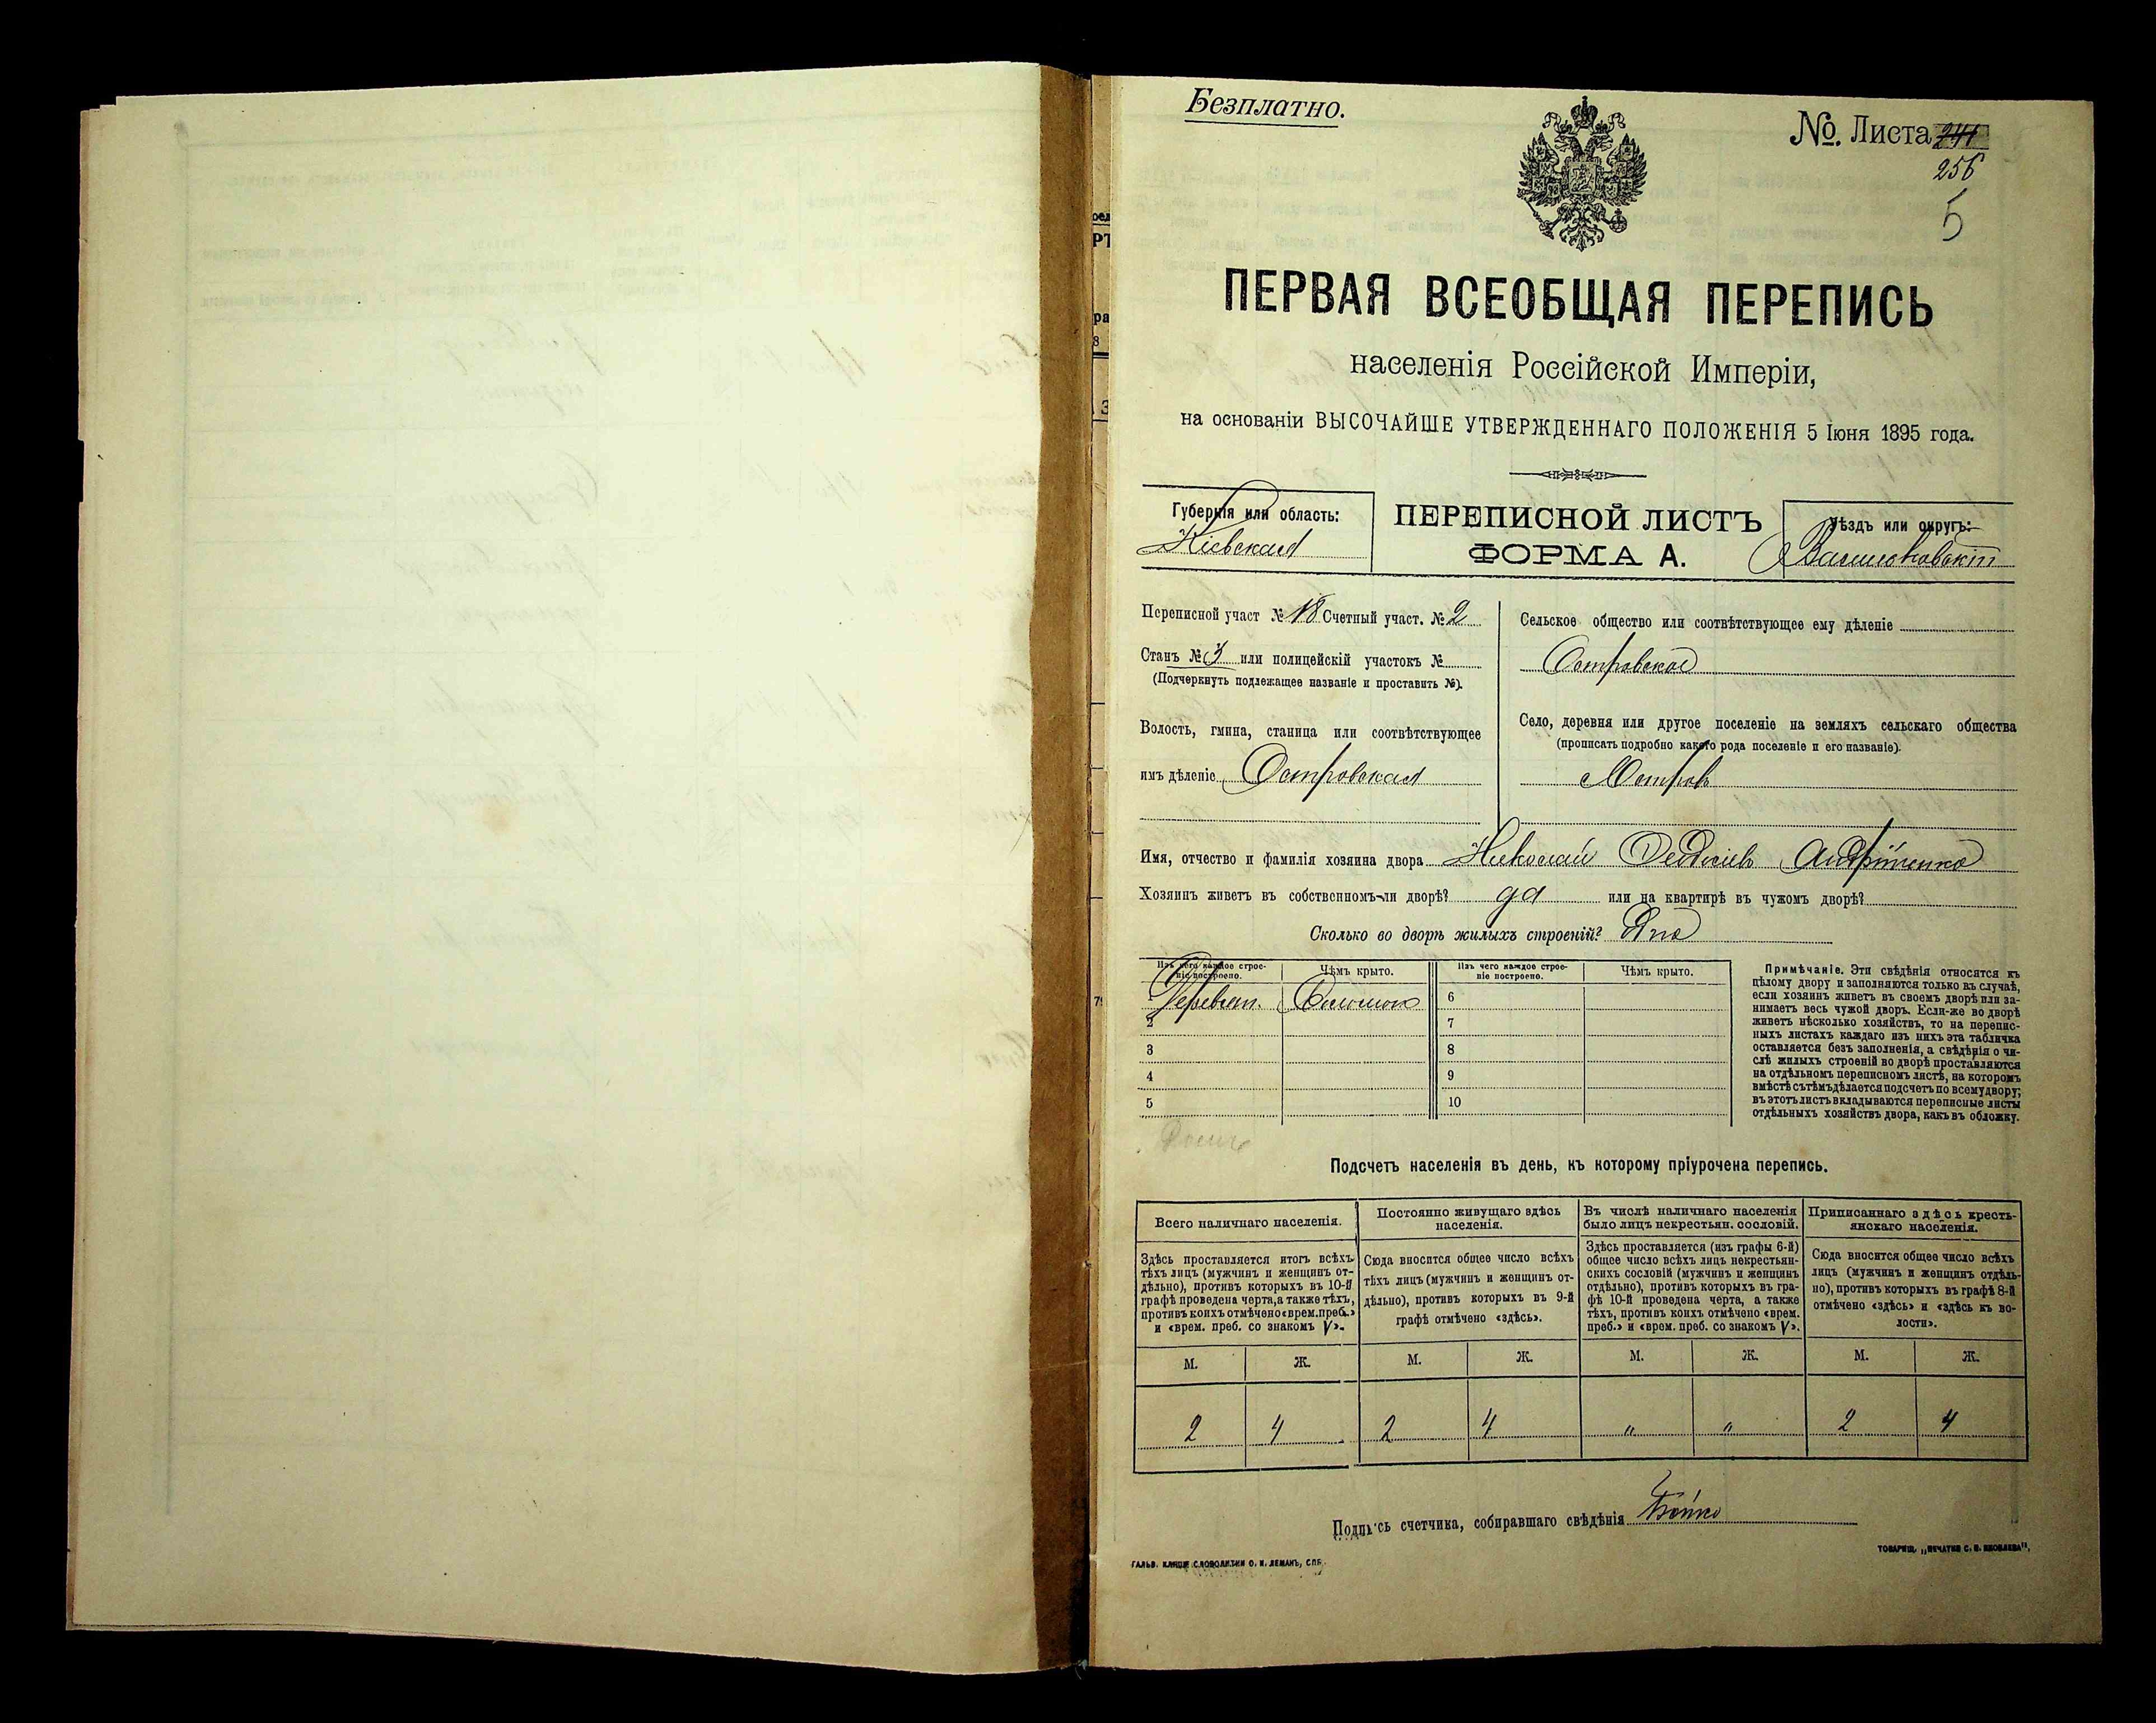 Безплатно.
№. Листа 241
256
5
ПЕРВАЯ ВСЕОБЩАЯ ПЕРЕПИСЬ
населенія Россійской Имперіи,
на основаніи ВЫСОЧАЙШЕ УТВЕРЖДЕННАГО ПОЛОЖЕНІЯ 5 Іюня 1895 года.
Губернія или область:
Кіевская
ПЕРЕПИСНОЙ ЛИСТЪ
ФОРМА А.
Уѣздъ или округъ:
Васильковскій
Переписной участ № 18 Счетный участ. № 2
Станъ № 3 или полицейскій участокъ №
(Подчеркнуть подлежащее названіе и проставить №).
Волость, гмина, станица или соотвѣтствующее
имъ дѣленіе Островская
Сельское общество или соотвѣтствующее ему дѣленіе
Островское
Село, деревня или другое поселеніе на земляхъ сельскаго общества
(прописать подробно какого рода поселеніе и его названіе).
Островъ
Имя, отчество и фамилія хозяина двора Николай Феодосіевъ Андрійченко
Хозяинъ живетъ въ собственномъ-ли дворѣ? да или на квартирѣ въ чужомъ дворѣ?
Сколько во дворѣ жилыхъ строеній? Одно
Изъ чего каждое строе-
ніе построено.
Чѣмъ крыто.
Изъ чего каждое строе-
ніе построено.
Чѣмъ крыто.
1 Деревян. Соломою 6
2 7
3 8
4 9
5 10
Примѣчаніе. Эти свѣдѣнія относятся къ
цѣлому двору и заполняются только въ случаѣ,
если хозяинъ живетъ въ своемъ дворѣ или за-
нимаетъ весь чужой дворъ. Если-же во дворѣ
живетъ нѣсколько хозяйствъ, то на перепис-
ныхъ листахъ каждаго изъ нихъ эта табличка
оставляется безъ заполненія, а свѣдѣнія о чи-
слѣ жилыхъ строеній во дворѣ проставляются
на отдѣльномъ переписномъ листѣ, на которомъ
вмѣстѣ съ тѣмъ дѣлается подсчетъ по всему двору;
въ этотъ листъ вкладываются переписные листы
отдѣльныхъ хозяйствъ двора, какъ въ обложку.
Подсчетъ населенія въ день, къ которому пріурочена перепись.
Всего наличнаго населенія.
Постоянно живущаго здѣсь
населенія.
Въ числѣ наличнаго населенія
было лицъ некрестьян. сословій.
Приписаннаго здѣсь кресть-
янскаго населенія.
Здѣсь проставляется итогъ всѣхъ
тѣхъ лицъ (мужчинъ и женщинъ от-
дѣльно), противъ которыхъ въ 10-й
графѣ проведена черта, а также тѣхъ,
противъ коихъ отмѣчено «врем. преб.»
и «врем. преб. со знакомъ V».
Сюда вносится общее число всѣхъ
тѣхъ лицъ (мужчинъ и женщинъ от-
дѣльно), противъ которыхъ въ 9-й
графѣ отмѣчено «здѣсь».
Здѣсь проставляется (изъ графы 6-й)
общее число всѣхъ лицъ некрестьян-
скихъ сословій (мужчинъ и женщинъ
отдѣльно), противъ которыхъ въ гра-
фѣ 10-й проведена черта, а также
тѣхъ, противъ коихъ отмѣчено «врем.
преб.» и «врем. преб. со знакомъ V».
Сюда вносится общее число всѣхъ
лицъ (мужчинъ и женщинъ отдѣль-
но), противъ которыхъ въ графѣ 8-й
отмѣчено «здѣсь» и «здѣсь къ во-
лости».
М. Ж. М. Ж. М. Ж. М. Ж.
2 4 2 4 " " 2 4
Подпись счетчика, собиравшаго свѣдѣнія Бойко
ГАЛЬВ. КЛИШЕ СЛОВОЛИТНИ О. И. ЛЕМАНЪ, СПБ.
ТОВАРИЩ. „ПЕЧАТНЯ С. П. ЯКОВЛЕВА",